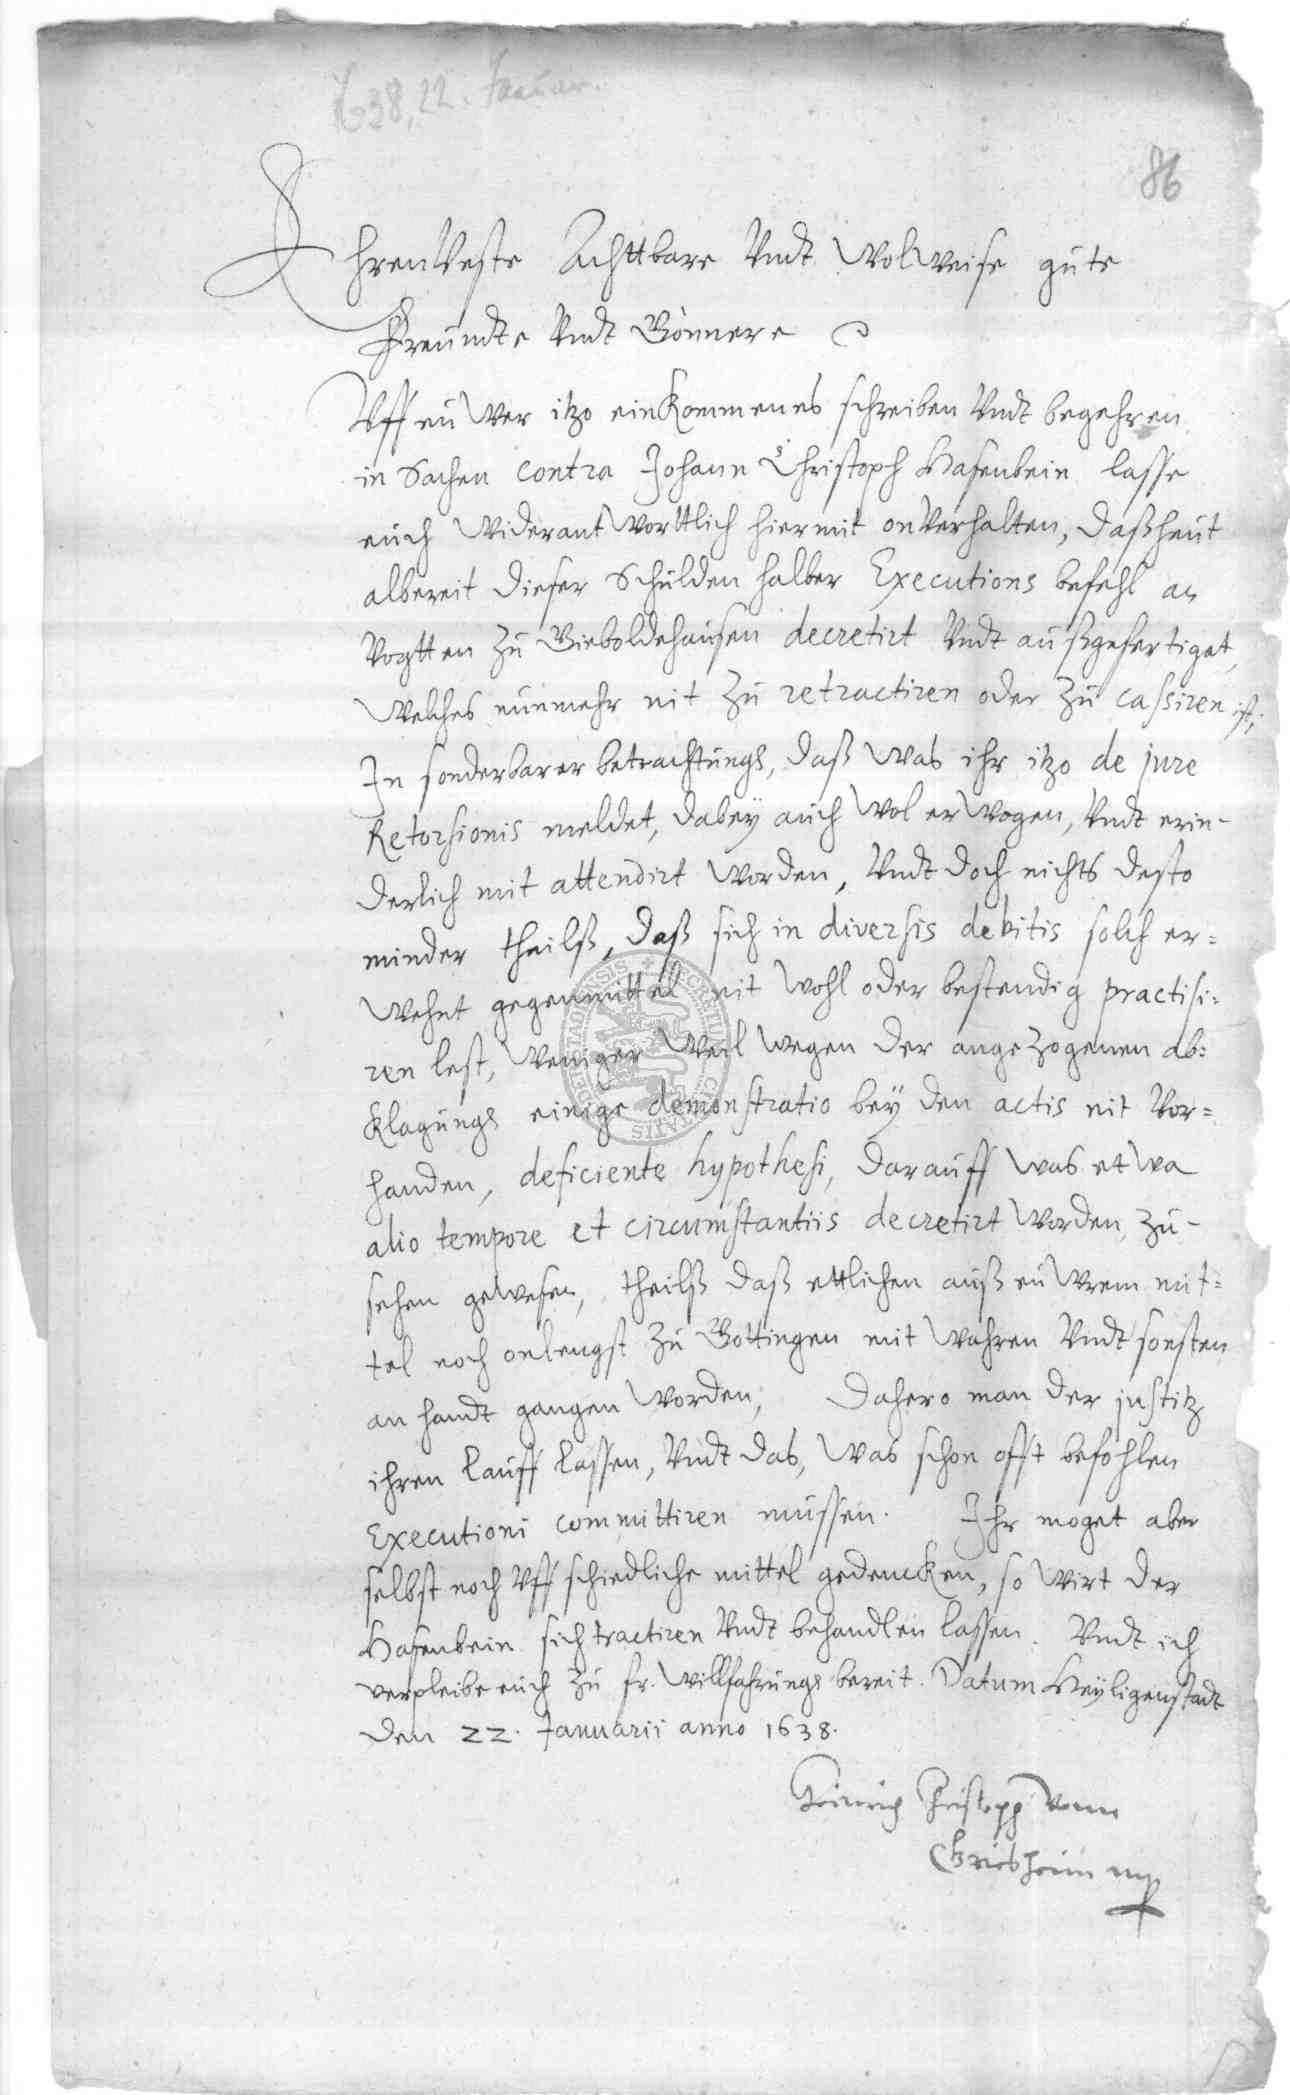 1638, 22. Januar.
86
EhrenVeste Achttbare Vndt WolWeise gute
Freundte Vndt Gönnere
Vff euWer itzo einkommenes schreiben Vndt begehren
in Sachen contra Johann Christoph Hasenbein lasse
euch WiderantWorttlich hiermit onVerhalten, daß heut
albereit dieser Schulden halber Executions befehl an
Vogtten zu Gieboldehausen decretirt Vndt außgefertiget,
Welches nunmehr nit zu retractiren oder zu cassiren ist,
In sonderbarer betrachtung, daß Was ihr itzo de jure
Retorsionis meldet, dabey auch Wol erWogen, Vndt erin-
derlich mit attendirt Worden, Vndt doch nichts desto
minder theilß, daß sich in diversis debitis solch er=
Wehnt gegenmittel nit Wohl oder bestendig practisi=
ren lest, Weniger Weil Wegen der angezogenen ab=
klagung einige demonstratio bey den actis nit Vor=
handen, deficiente hypothesi, darauff Was etWa
alio tempore et circumstantiis decretirt Worden, zu-
sehen geWesen, theilß daß ettlichen auß euWrem mit=
tel noch onlengst zu Gottingen mit Wahren Vndt sonsten
an handt gangen Worden, Dahero man der justitz
ihren lauff lassen, Vndt das, Was schon offt befohlen
Executioni committiren müssen. Ihr moget aber
selbst noch Vff schiedliche mittel gedencken, so Wirt der
Hasenbein sich tractiren Vndt behandlen lassen. Vndt ich
verpleibe euch zu fr. Willfahrung bereit. Datum Heyligenstadt
den 22. Januarii anno 1638.
Heinrich Christoph Vonn
Griesheim mp